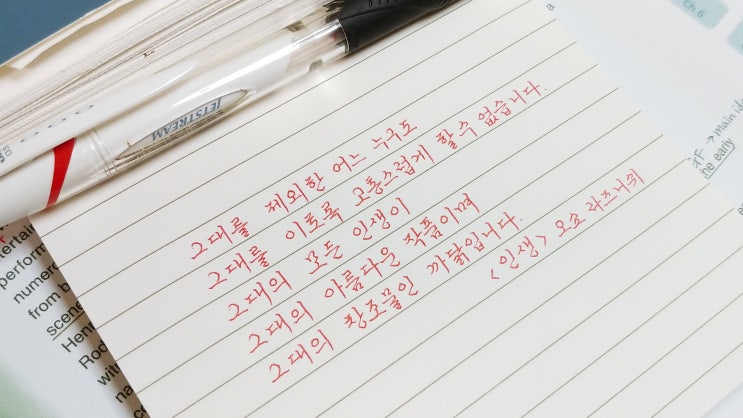 그대를 제외한 어느 누구도
그대를 이토록 고통스럽게 할 수 없습니다.
그대의 모든 인생이
그대의 아름다운 작품이며
그대의 창조물인 까닭입니다.
<인생> 오쇼 라즈니쉬
JETSTREAM
Ch 6
→ main id
the early
perform
numer
from b
scene
Hen
Roc
wit
na